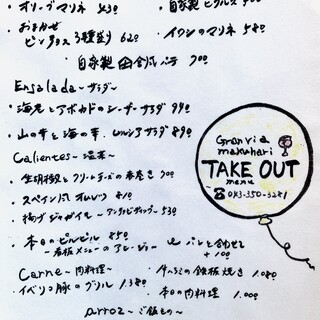 ・オリーブマリネ 430
・自家製ピクルス
・おまかせ
ピンチョス 3種盛り 620
・イワシのマリネ 580
・自家製 田舎風パテ 700
Ensalada〜サラダ〜
・海老とアボカドのシーザーサラダ 990
・山の幸と海の幸、サラダ 890
Calientes〜温菜〜
・生胡椒とクリームチーズの春巻き 700
・スペイン風オムレツ 810
・揚げジャガイモ〜アンチョビディップ〜 530
・本日のピルピル 850
〜看板メニューのアヒージョ〜
パンと合わせて
+100
Carne〜肉料理〜
・牛ハラミの鉄板焼き 1.080
・イベリコ豚のグリル 1.380
・本日の肉料理 1.000
arroz〜ご飯もの〜
Granvia
makuhari
TAKE OUT
menu
☎043-350-3281